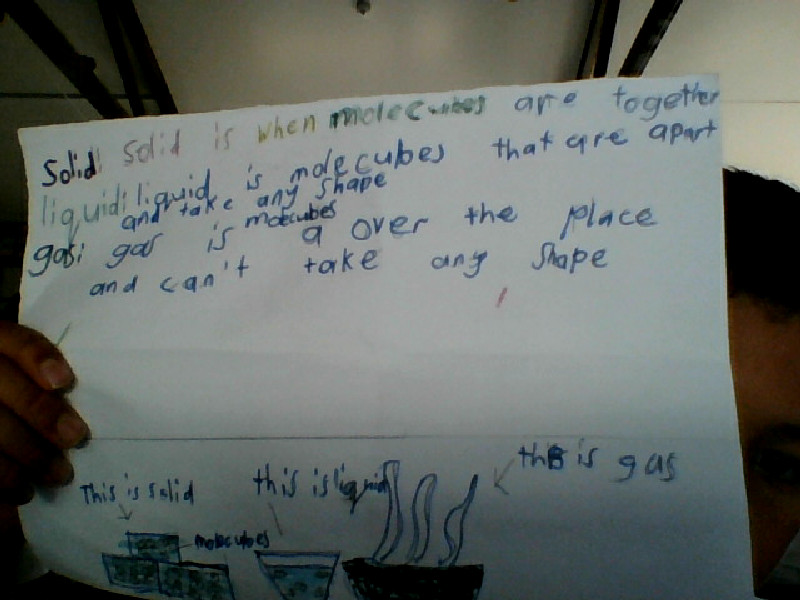 Solid: Solid is when molecubes are together
liquid: liquid is molecubes that are apart
and take any shape
gas: gas is molecubes a over the place
and can't take any shape
This is solid
this is liquid
this is gas
molecubes